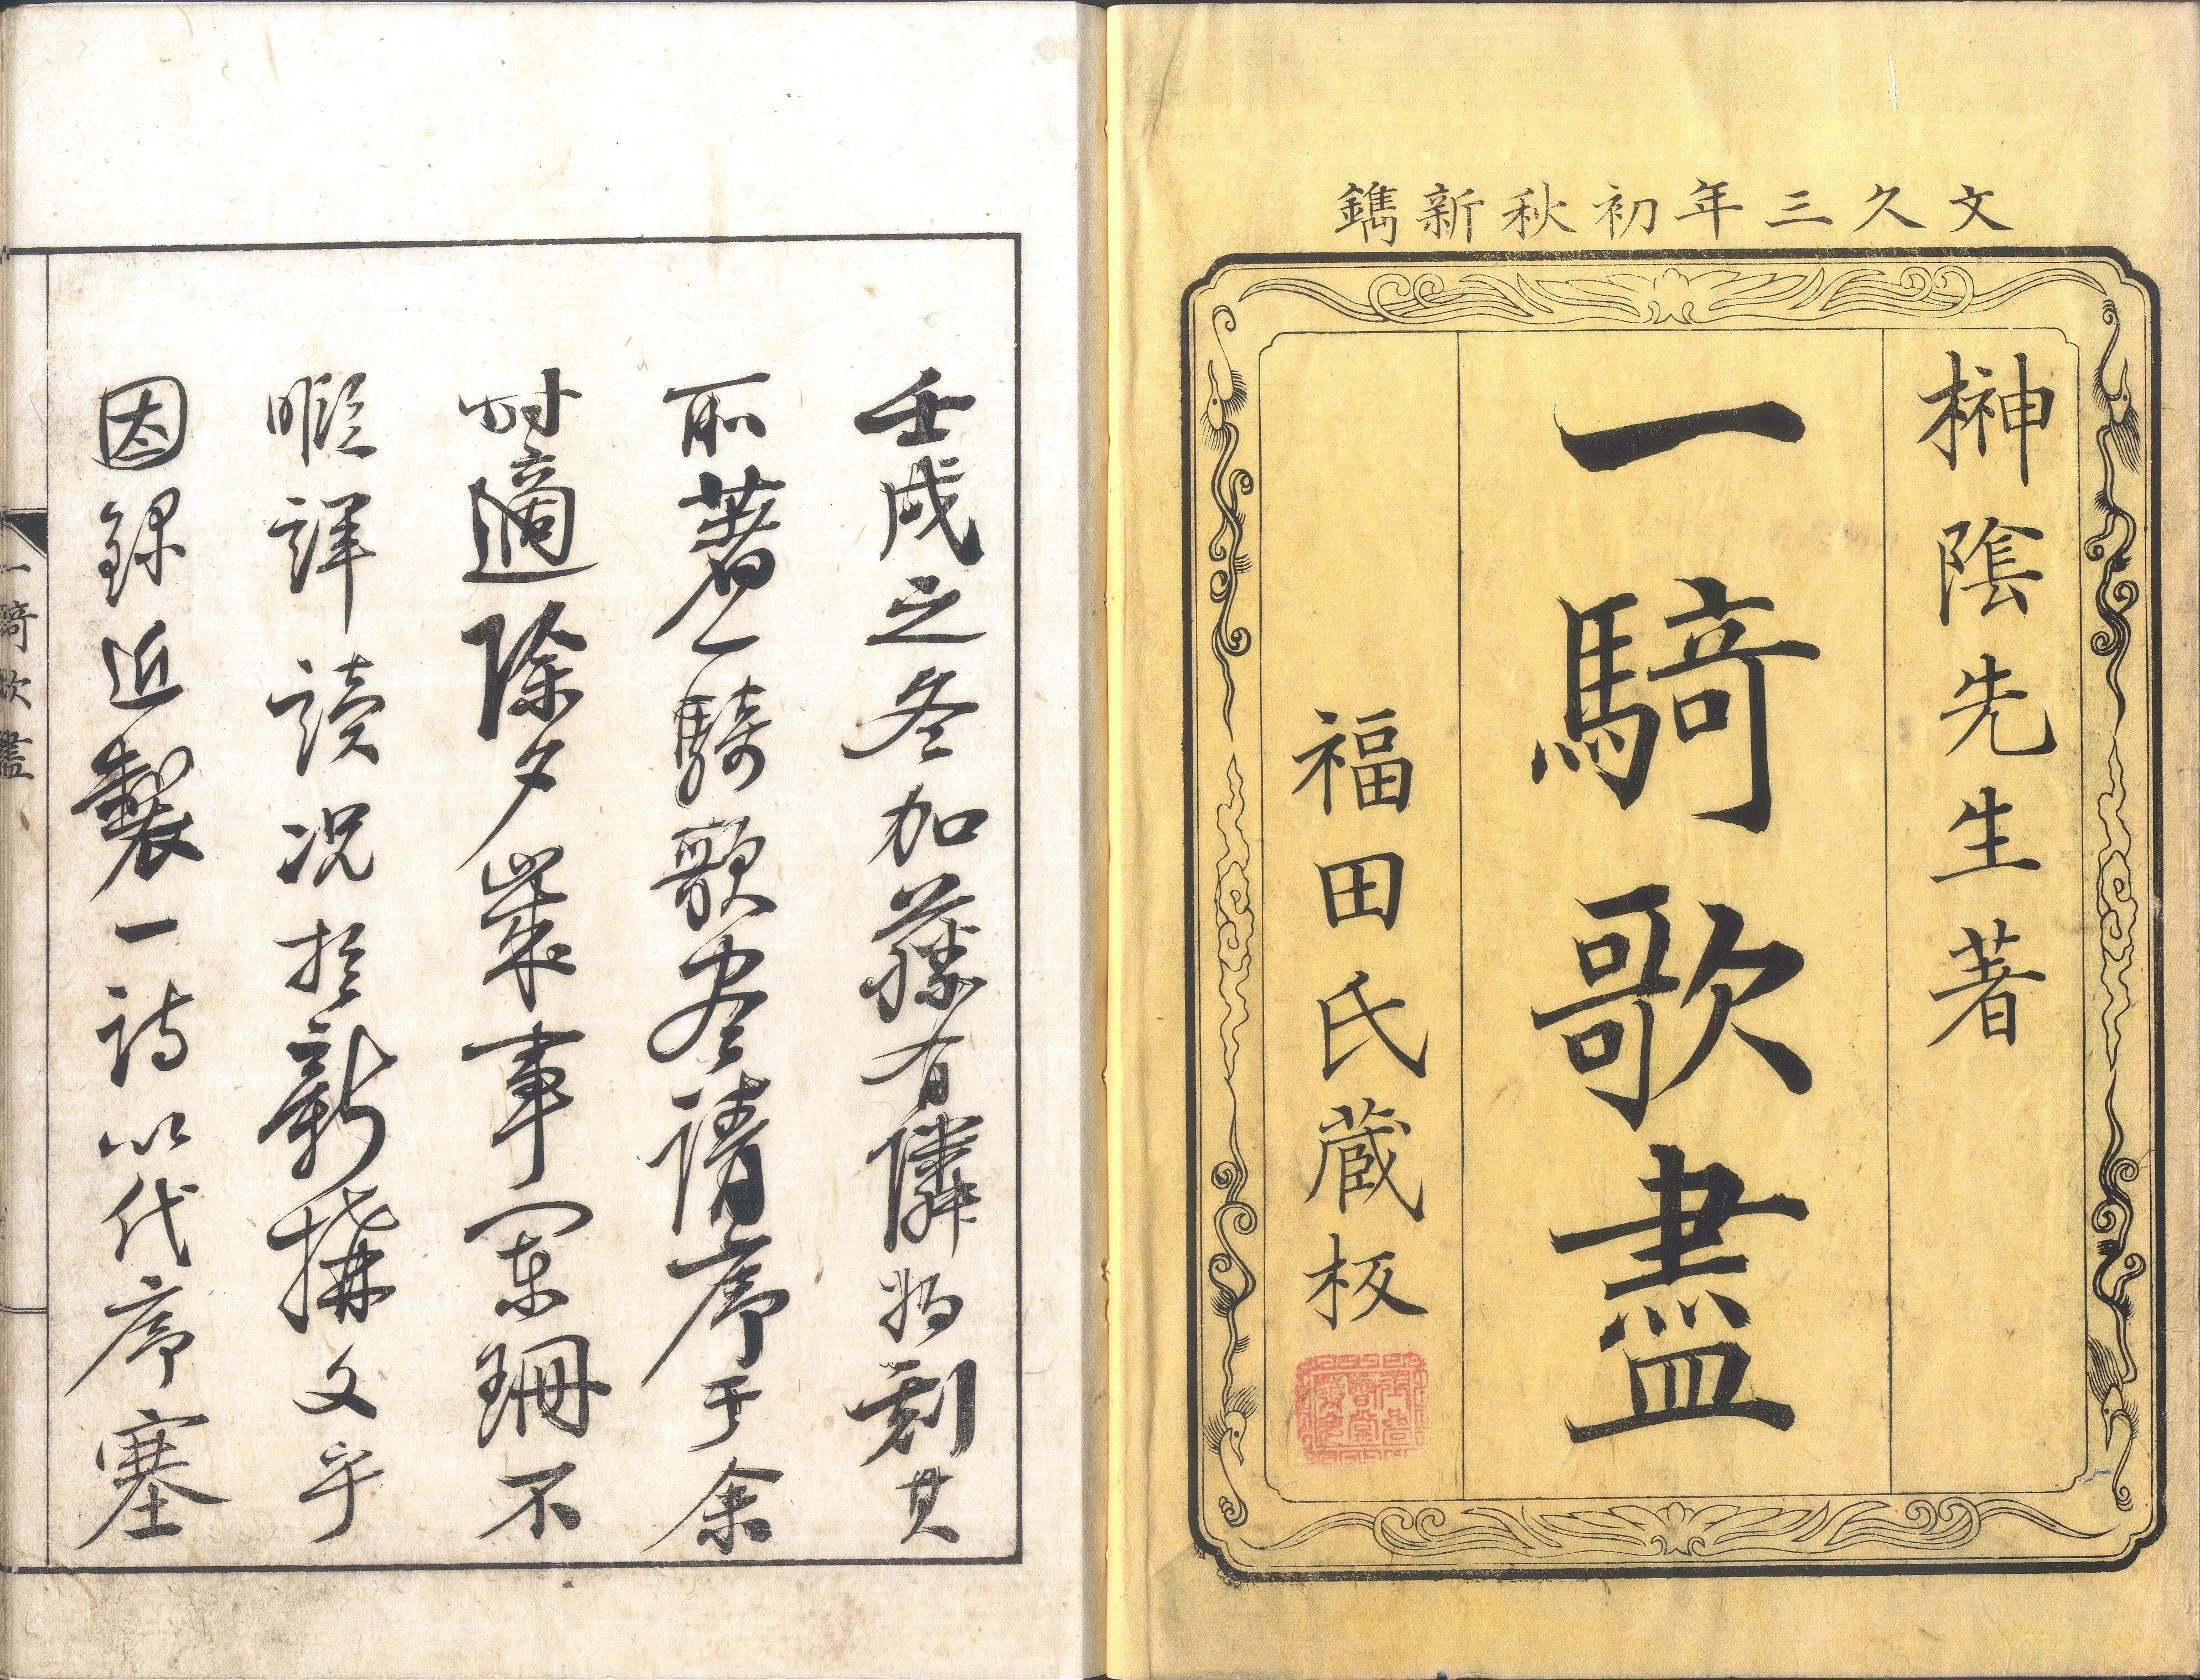 文久三年初秋新鐫
榊陰先生著
一騎歌盡
福田氏蔵板
壬戌之冬加藤有隣将刻其
所著一騎歌尽請序于余
時適除夕歳事闌珊不
暇詳読況於新構文乎
因録近製一詩以代序塞
一騎歌盡